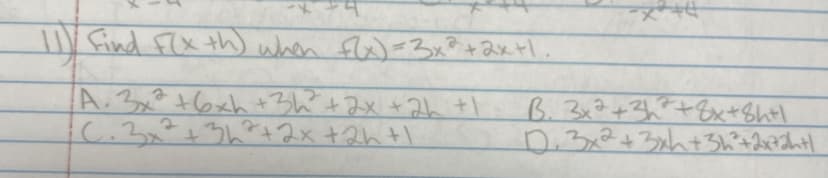 11) Find F(x+h) when f(x)=3x²+2x+1.
A. 3x²+6xh+3h²+2x+2h+1 B. 3x²+3h²+8x+8h+1
C. 3x²+3h²+2x+2h+1 D. 3x²+3xh+3h²+2x+2h+1